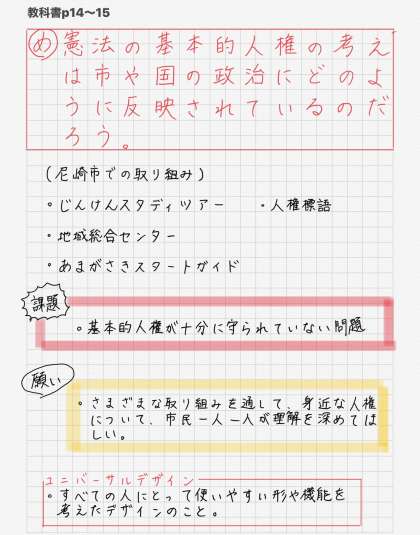 教科書p14〜15
め 憲法の基本的人権の考え
は市や国の政治にどのよ
うに反映されているのだ
ろう。
(尼崎市での取り組み)
・じんけんスタディツアー ・人権標語
・地域総合センター
・あまがさきスタートガイド
課題
・基本的人権が十分に守られていない問題
願い
・さまざまな取り組みを通して、身近な人権
について、市民一人一人が理解を深めてほ
しい。
ユニバーサルデザイン
・すべての人にとって使いやすい形や機能を
考えたデザインのこと。